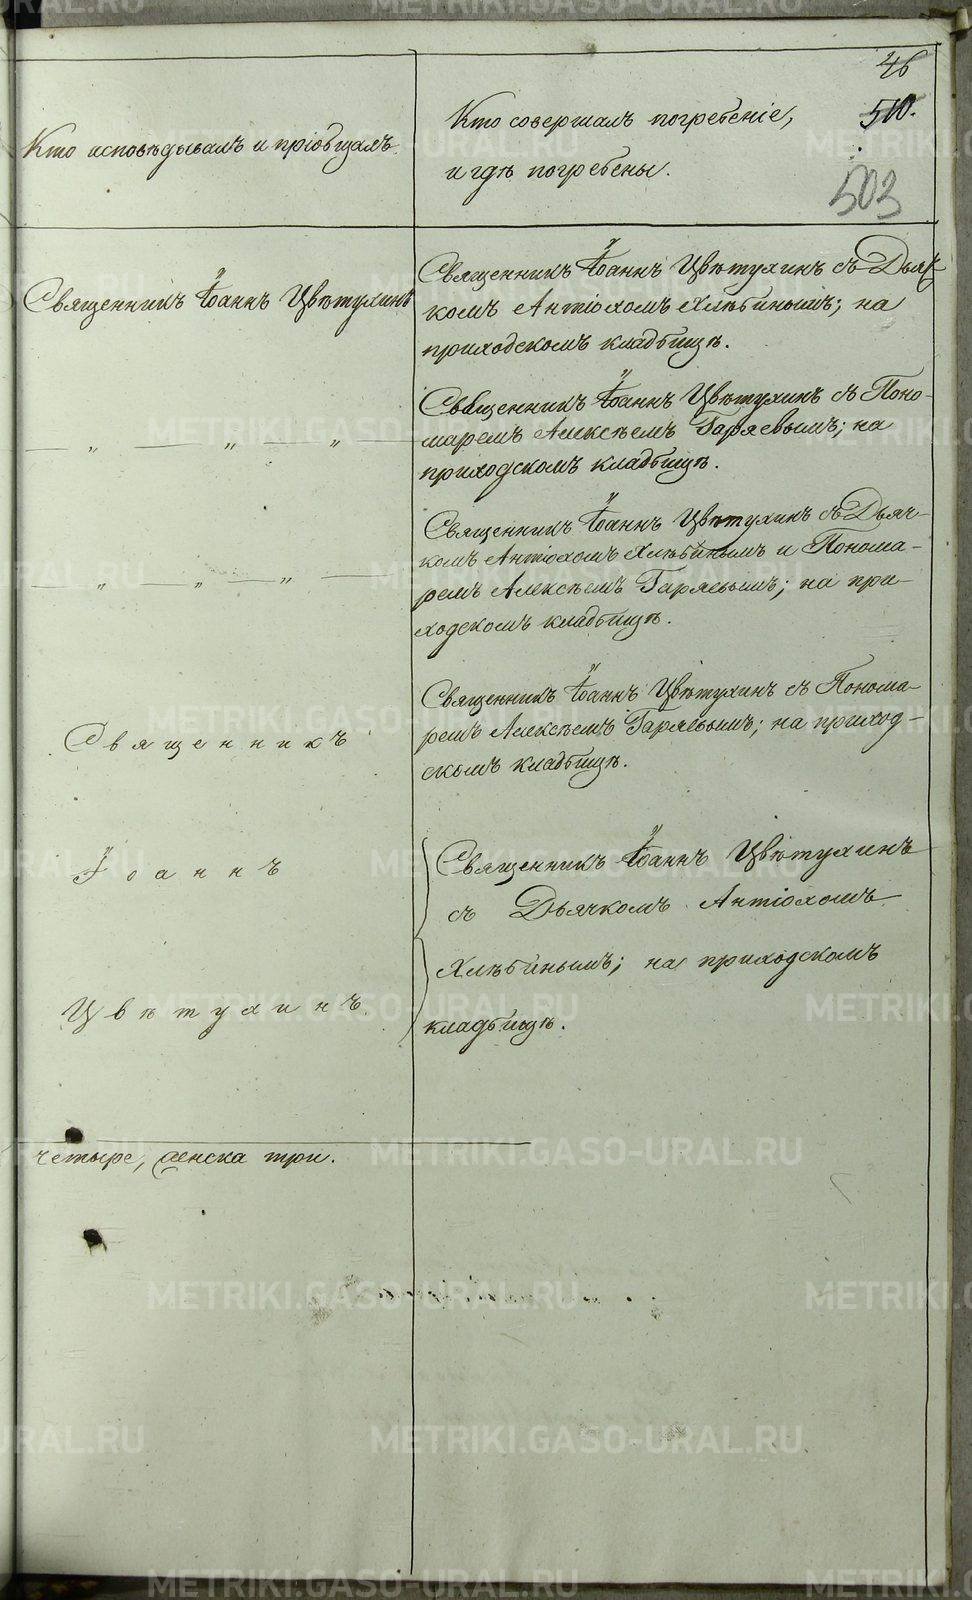 46
510.
503
Кто исповѣдывалъ и пріобщалъ.
Кто совершалъ погребеніе,
и гдѣ погребены.
Священникъ Іоаннъ Цвѣтухинъ
Священникъ Іоаннъ Цвѣтухинъ съ Дьяч-
комъ Антіохомъ Хлѣбинымъ; на
приходскомъ кладбищѣ.
— „ — „ — „ —
Священникъ Іоаннъ Цвѣтухинъ съ Поно-
маремъ Алексѣемъ Гаряевымъ; на
приходскомъ кладбищѣ.
— „ — „ — „ —
Священникъ Іоаннъ Цвѣтухинъ съ Дьяч-
комъ Антіохомъ Хлѣбинымъ и Понома-
ремъ Алексѣемъ Гаряевымъ; на при-
ходскомъ кладбищѣ.
Священникъ
Іоаннъ
Цвѣтухинъ.
Священникъ Іоаннъ Цвѣтухинъ съ Понома-
ремъ Алексѣемъ Гаряевымъ; на приход-
скомъ кладбищѣ.
Священникъ Іоаннъ Цвѣтухинъ
съ Дьячкомъ Антіохомъ
Хлѣбинымъ; на приходскомъ
кладбищѣ.
четыре, женска три.
METRIKI.GASO-URAL.RU